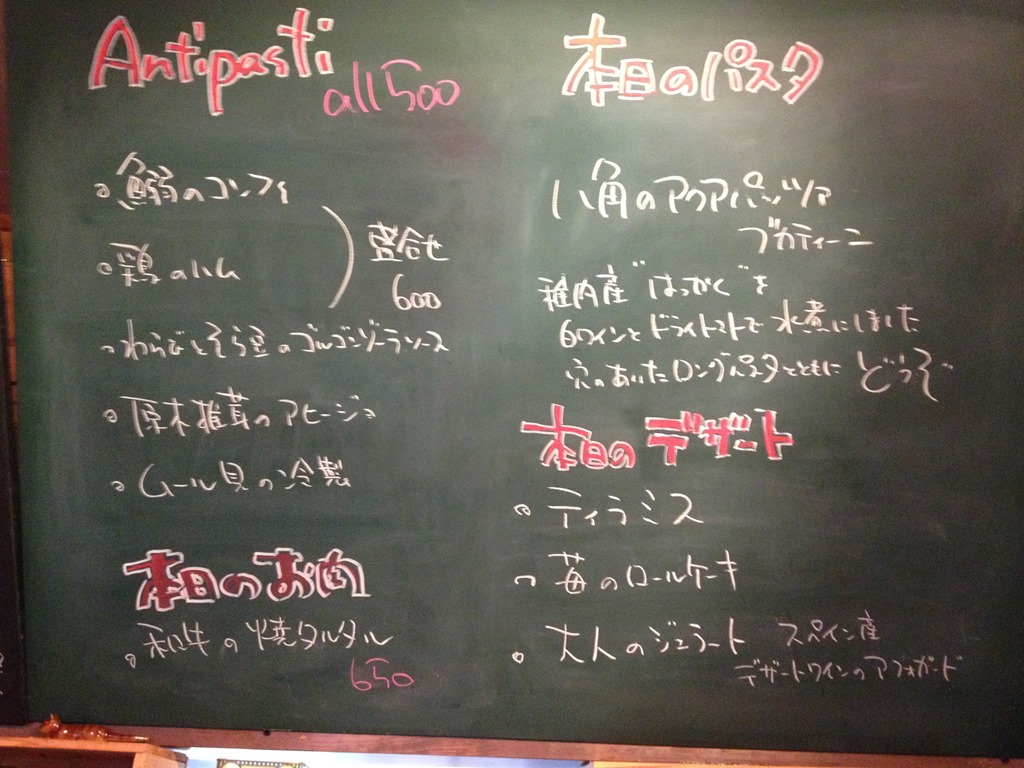 Antipasti
all 500
鰯のコンフィ
鶏のハム
盛合せ
600
わらびとそら豆のゴルゴンゾーラソース
原木椎茸のアヒージョ
ムール貝の冷製
本日のお肉
和牛の焼タルタル
650
本日のパスタ
八角のアクアパッツァ
ブカティーニ
稚内産"はっかく"を
白ワインとドライトマトで水煮にしました
穴のあいたロングパスタとともに どうぞ
本日のデザート
ティラミス
苺のロールケーキ
大人のジェラート スペイン産
デザートワインのアフォガード